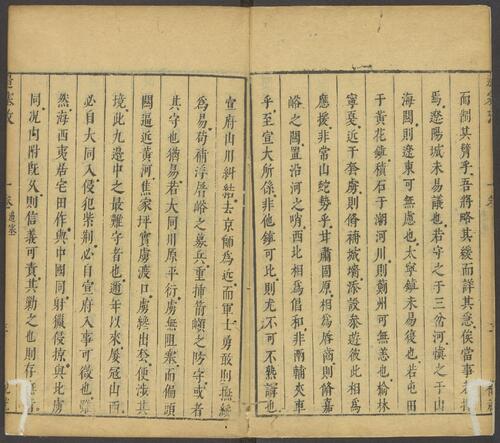 而制其臂乎吾將略其緩而詳其急俟當事者
焉遼陽城未易議也若守之于三岔河慎之于山
海關則遼東可無慮也太寧鎮未易復也若屯田
于黃花鎮積石于潮河川則薊州可無恙也榆林
寧夏近于套虜則脩補城墻添設參遊彼此相爲
應援非常山蛇勢乎甘肅固原相爲唇齒則脩嘉
峪之關置沿河之哨西北相爲倡和非兩輔夾車
乎至宣大所係非他鎮可比則尤不可不熟講也
宣府山川糾結去京師爲近而軍士勇敢則撫綏
爲易苟補浮唇峪之募兵重揷箭嶺之防守或者
其守也猶易若大同川原平衍虜無阻塞而偏頭
關逼近黃河焦家坪實虜渡口虜纔出套便涉其
境此九邊中之最難守者也邇年以來屢寇山西
必自大同入侵犯柴荊必自宣府入事可徵也雖
然海西夷居宅田作與中國同射獵侵掠與北虜
同况內附既久則信義可責其勦之也則存